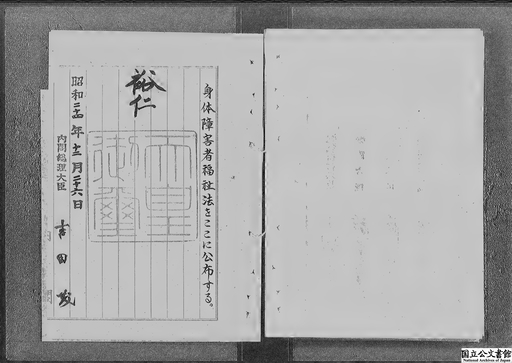 身体障害者福祉法をここに公布する。
裕仁
天皇
御璽
昭和二十四年十二月二十六日
内閣総理大臣 吉田茂
国立公文書館
National Archives of Japan